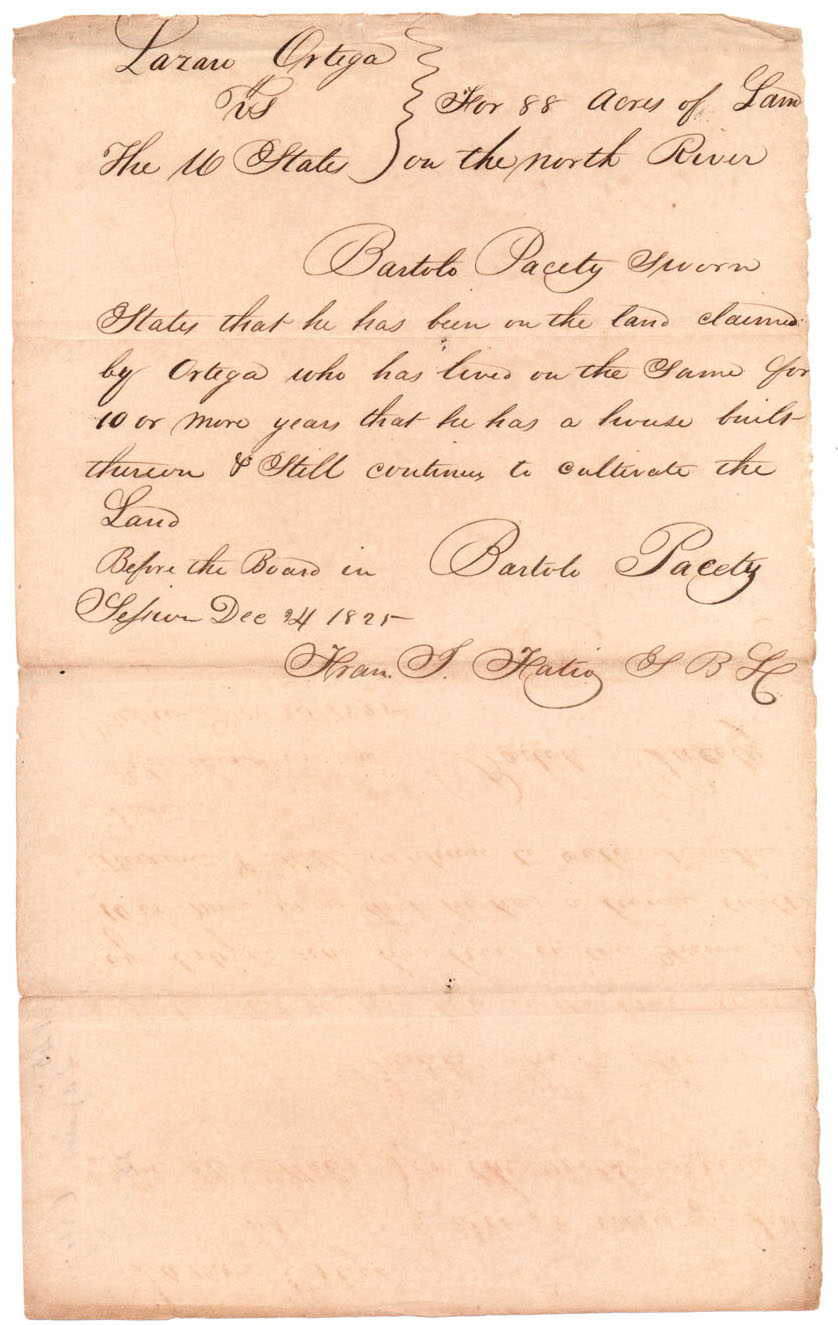 Lazaro Ortega
Vs } For 88 Acres of Land
The U States } on the north River
Bartolo Pacety Sworn
States that he has been on the land claimed
by Ortega who has lived on the Same for
10 or more years that he has a house built
thereon & Still continues to cultivate the
Land
Before the Board in Bartolo Pacety
Session Dec 24 1825
Fran. J. Fatio S B L C